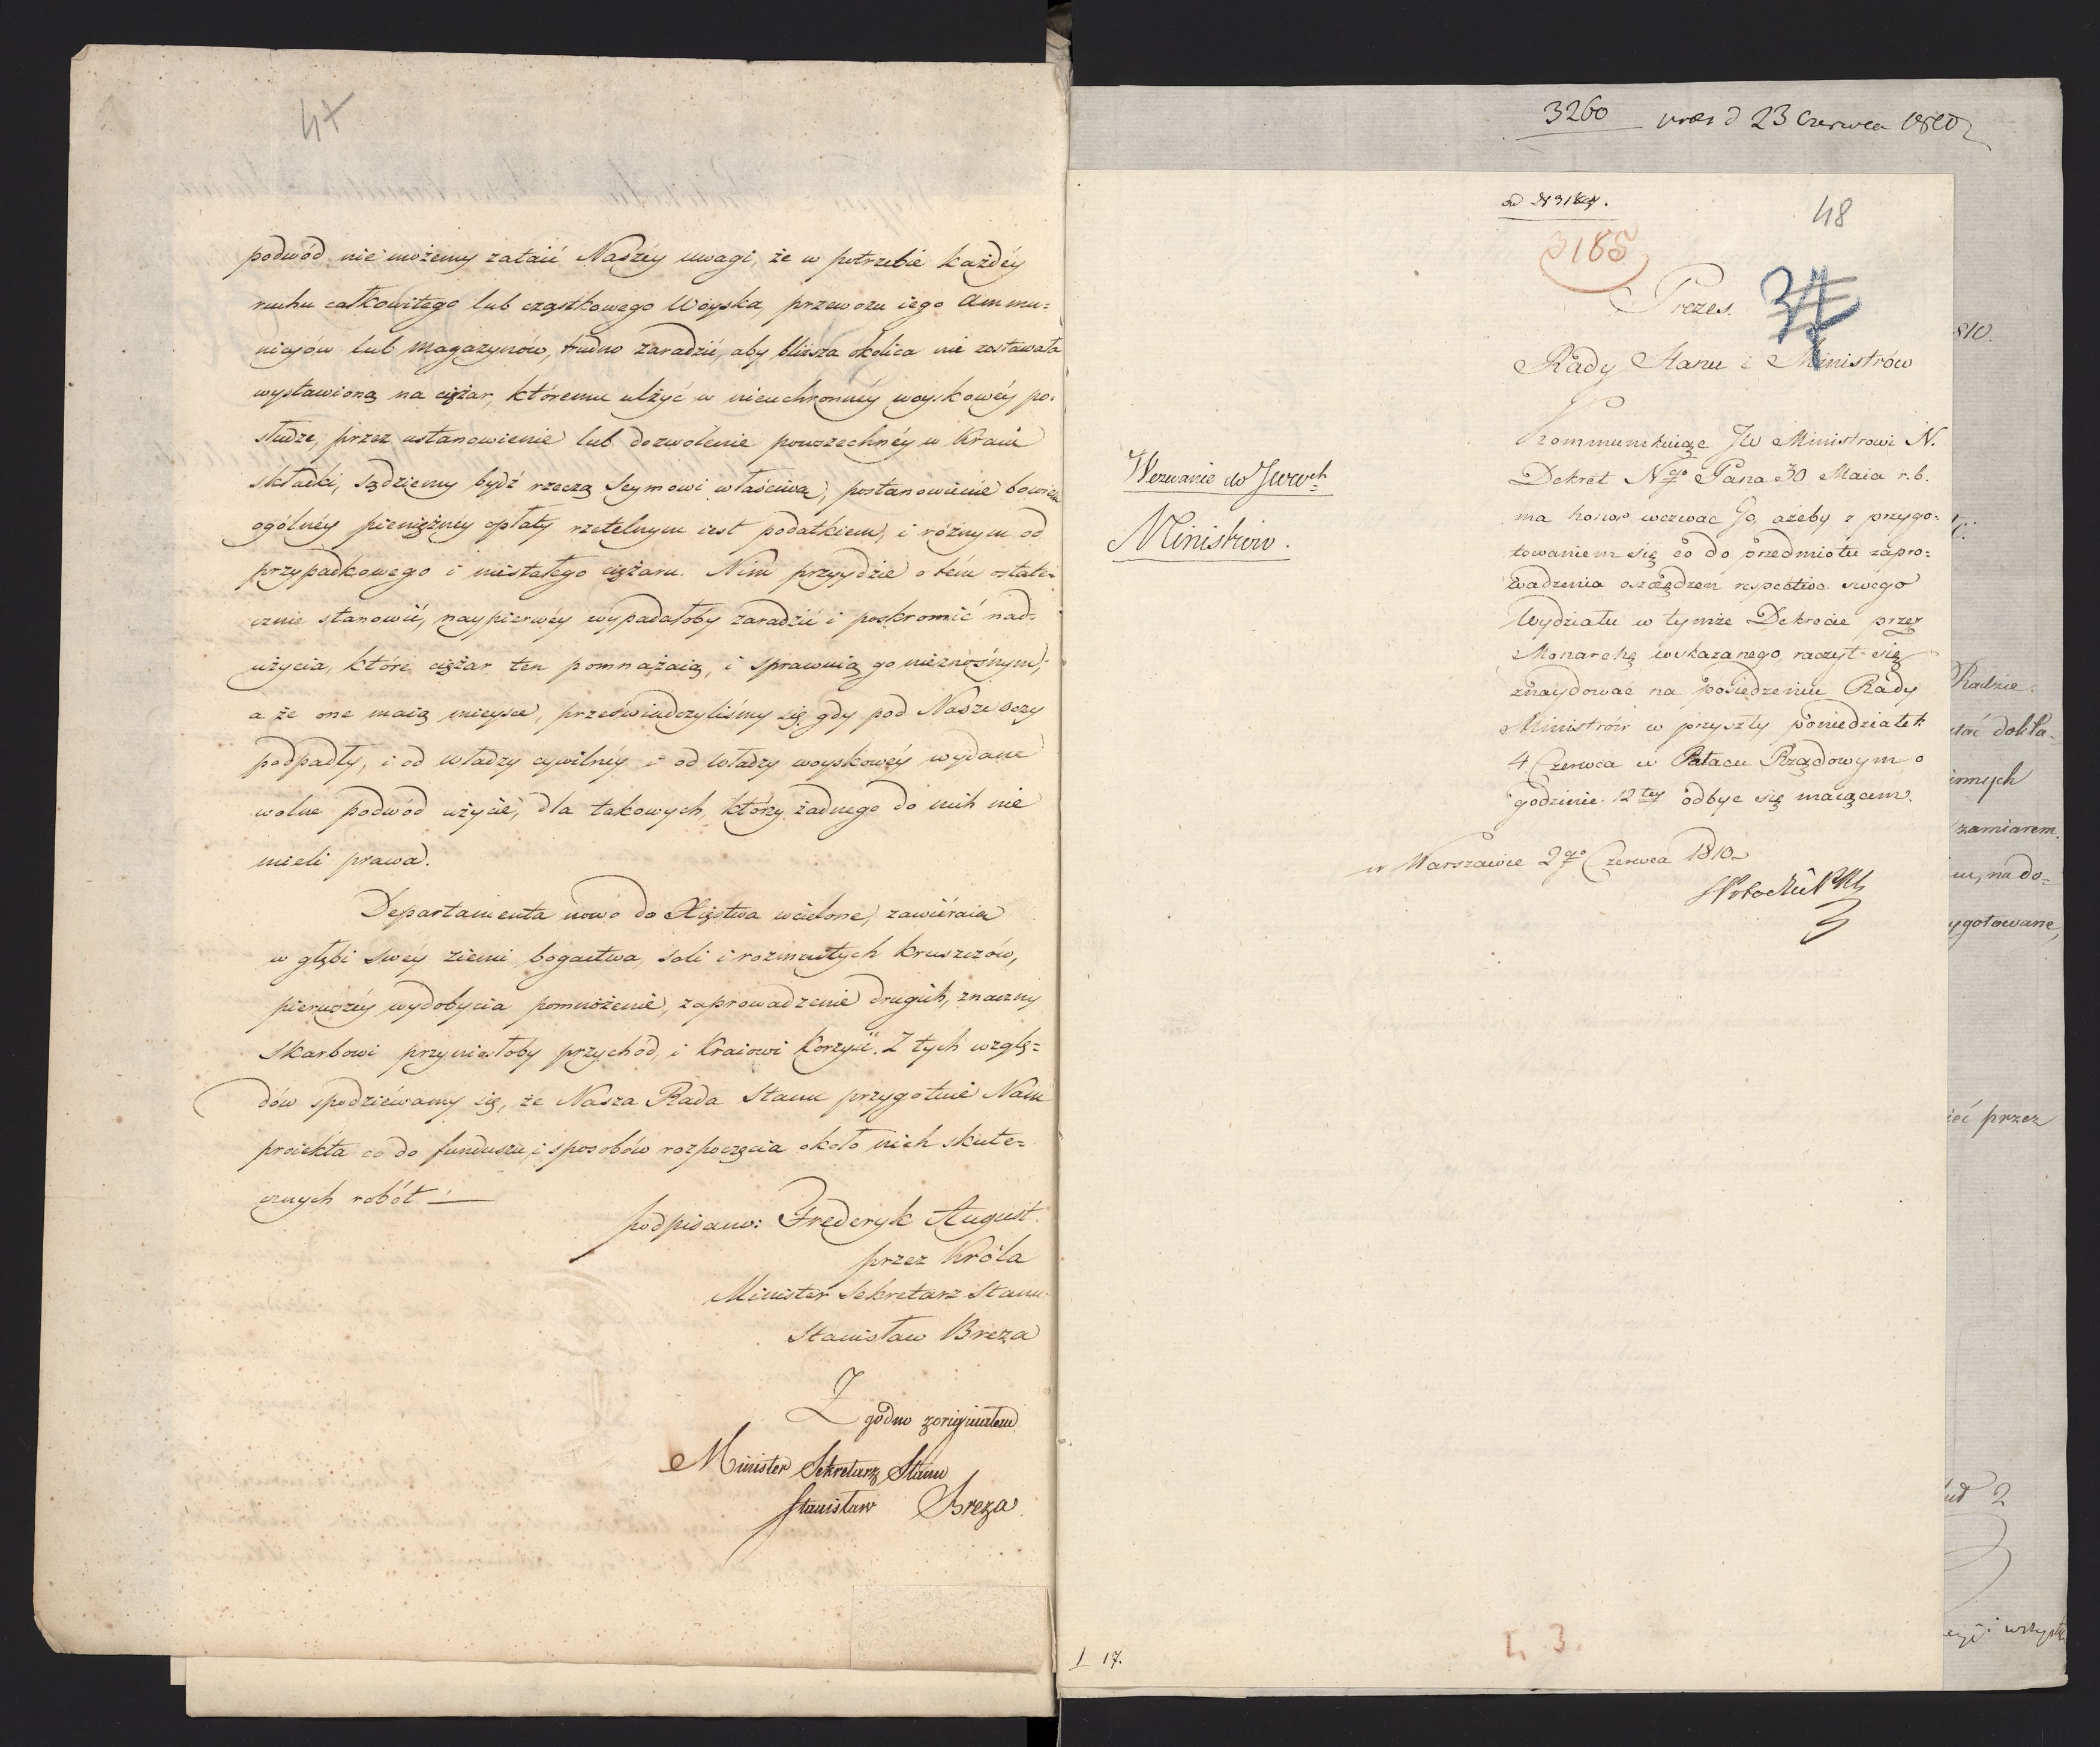 47
podwód nie możemy zataić Naszéy uwagi, że w potrzebie każdéy
ruchu całkowitego lub cząstkowego Woyska, przewozu iego Ammu=
nicyów lub Magazynów, trudno zaradzić, aby bliższa okolica nie zostawała
wystawioną na ciężar, któremu ulżyć w nieuchronnéy woyskowéy po=
słudze, przez ustanowienie lub dozwolenie powszechnéy w Kraiu
składki, sądziemy bydź rzeczą Seymowi właściwą, postanowienie bowiem
ogólnéy pieniężnéy opłaty rzetelnym iest podatkiem, i różnym od
przypadkowego i niestałego ciężaru. Nim przyydzie o tém ostate=
cznie stanowić, naypierwéy wypadałoby zaradzić i poskromić nad=
użycia, które ciężar ten pomnażaią, i sprawuią go nieznośnym;
a że one maią mieysce, przeświadczyliśmy się, gdy pod Nasze oczy
podpadły, i od władzy cywilnéy i od władzy woyskowéy wydane
wolne podwód użycie, dla takowych, którzy żadnego do nich nie
mieli prawa.
Departamenta nowo do Xięstwa wcielone, zawieraia
w głębi swéy ziemi bogactwa, soli i rozmaitych kruszczów,
pierwszéy wydobycia pomnożenie, zaprowadzenie drugich, znaczny
Skarbowi przyniosłoby przychód, i Kraiowi korzyść. Z tych wzglę=
dów spodziéwamy się, że Nasza Rada Stanu przygotuie Nam
proiekta co do funduszu, i sposobów rozpoczęcia około nich skute=
cznych robót.—
podpisano: Frederyk August.
przez Króla
Minister Sekretarz Stanu
Stanisław Breza
Zgodno z originałem
Minister Sekretarz Stanu
Stanisław Breza
3260 23 Czerwca 1810
48
3185
37
Prezes.
Rady Stanu i Ministrów
Wezwanie do JWW^ch
Ministrów.
Kommunikuiąc JW Ministrowi N.
Dekret N^go Pana 30 Maia r. b.
ma honor wezwać Go, ażeby z przygo=
towaniem się co do przedmiotu zapro=
wadzenia oszczędzen respective swego
Wydziału w tymże Dekrecie przez
Monarchę wskazanego, raczył się
znaydować na posiedzeniu Rady
Ministrów w przyszły poniedziałek
4 Czerwca w Pałacu Rządowym o
godzinie 12^tey odbyć się maiącem.
w Warszawie 2^go Czerwca 1810
810.
Radzie
dokła=
innych
zamiarem.
na do=
ygotowane,
przez
1 17.
3.